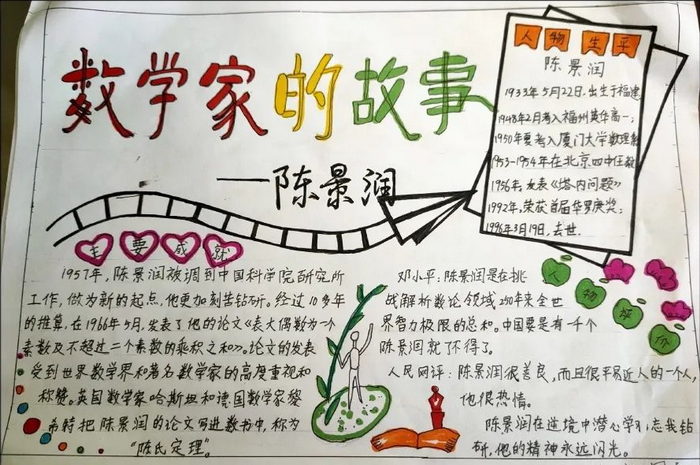 数学家的故事
——陈景润
人物生平
陈景润
1933年5月22日.出生于福建
1948年2月考入福州英华高一;
1950年夏考入厦门大学数理系
1953-1954年在北京四中任教
1956年,发表《塔内问题》
1992年,荣获首届华罗庚奖;
1996年3月19日,去世.
主要成就
1957年,陈景润被调到中国科学院研究所
工作,做为新的起点,他更加刻苦钻研。经过10多年
的推算,在1966年5月,发表了他的论文《表大偶数为一个
素数及不超过二个素数的乘积之和》。论文的发表
受到世界数学界和著名数学家的高度重视和
称赞。英国数学家哈斯坦和德国数学家黎
希特把陈景润的论文写进数书中,称为
“陈氏定理”。
人物评价
邓小平:陈景润是在挑
战解析数论领域250年来全世
界智力极限的总和。中国要是有一千个
陈景润就了不得了。
人民网评:陈景润很善良,而且很平易近人的一个人,
他很热情。
陈景润在逆境中潜心学习,忘我钻
研,他的精神永远闪光。